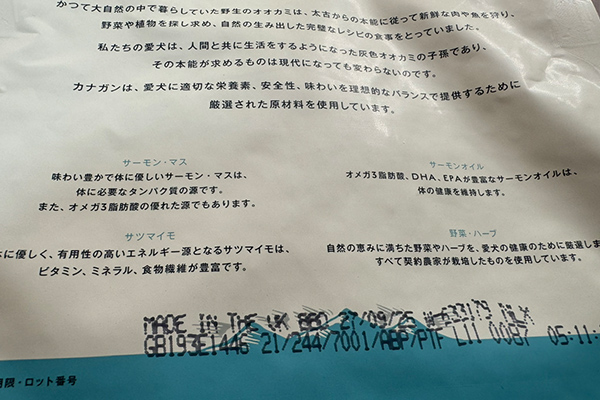 かつて大自然の中で暮らしていた野生のオオカミは、太古からの本能に従って新鮮な肉や魚を狩り、
野菜や植物を探し求め、自然の生み出した完璧なレシピの食事をとっていました。
私たちの愛犬は、人間と共に生活をするようになった灰色オオカミの子孫であり、
その本能が求めるものは現代になっても変わらないのです。
カナガンは、愛犬に適切な栄養素、安全性、味わいを理想的なバランスで提供するために
厳選された原材料を使用しています。
サーモン・マス
味わい豊かで体に優しいサーモン・マスは、
体に必要なタンパク質の源です。
また、オメガ3脂肪酸の優れた源でもあります。
サーモンオイル
オメガ3脂肪酸、DHA、EPAが豊富なサーモンオイルは、
体の健康を維持します。
サツマイモ
に優しく、有用性の高いエネルギー源となるサツマイモは、
ビタミン、ミネラル、食物繊維が豊富です。
野菜・ハーブ
自然の恵みに満ちた野菜やハーブを、愛犬の健康のために厳選しま
すべて契約農家が栽培したものを使用しています。
MADE IN THE UK BBD 27/09/25
GB193E1446 21/244/7001/ABP/PTF L11 0087 05:11:
限・ロット番号